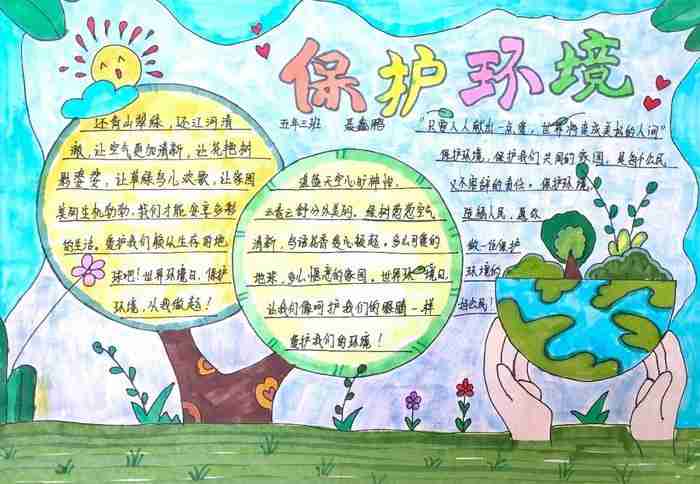 保护环境
五年三班 聂鑫鹏
还青山翠绿，还江河清
澈，让空气更加清新，让花艳树
影婆娑，让草绿鸟儿欢歌，让家园
美丽生机勃勃，我们才能安享多彩
的生活。爱护我们赖以生存的地
球吧！世界环境日，保护
环境，从我做起！
湛蓝天空儿时神怡，
云卷云舒分外美丽。绿树葱葱空气
清新，鸟语花香婴儿顿起。多么可爱的
地球，多么惬意的家园。世界环境日
让我们像呵护我们的眼睛一样
爱护我们的环境！
“只要人人献出一点爱，世界将变成美好的人间”
保护环境，保护我们共同的家园，是每个公民
义不容辞的责任。保护环境，
造福人民，愿政
做一位保护
环境的
好公民！